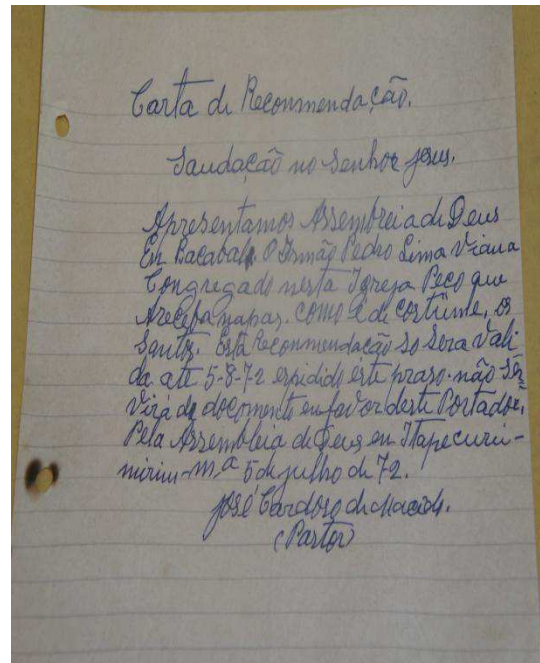 Carta de Recommendação.
Saudação no Senhor Jesus.
Apresentamos Assembreia de Deus
Em Bacabal O Irmão Pedro Lima Viana
Congregado nesta Igreja Peço que
Areceba napas. como é de cortume, os
Santos. Esta Recommendação so Sera Vali
da até 5-8-72 espidido este praso. não Ser=
Virá de docomento enfavor deste Portador,
Pela Assembleia de Deus en Itapecuru-
mirim-m.a 5 de julho de 72.
José Cardoso de Macido.
(Pastor)